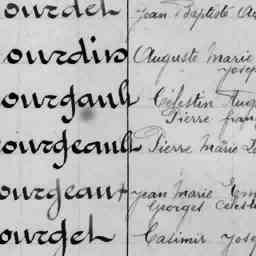 ourdel Jean Baptiste Au
ourdin Auguste Marie
Josep
ourgault Célestin Aug
Pierre fran
ourgeault Pierre Marie
ourgeaut Jean Marie Em
Georges Celest
ourgel Casimir Jose